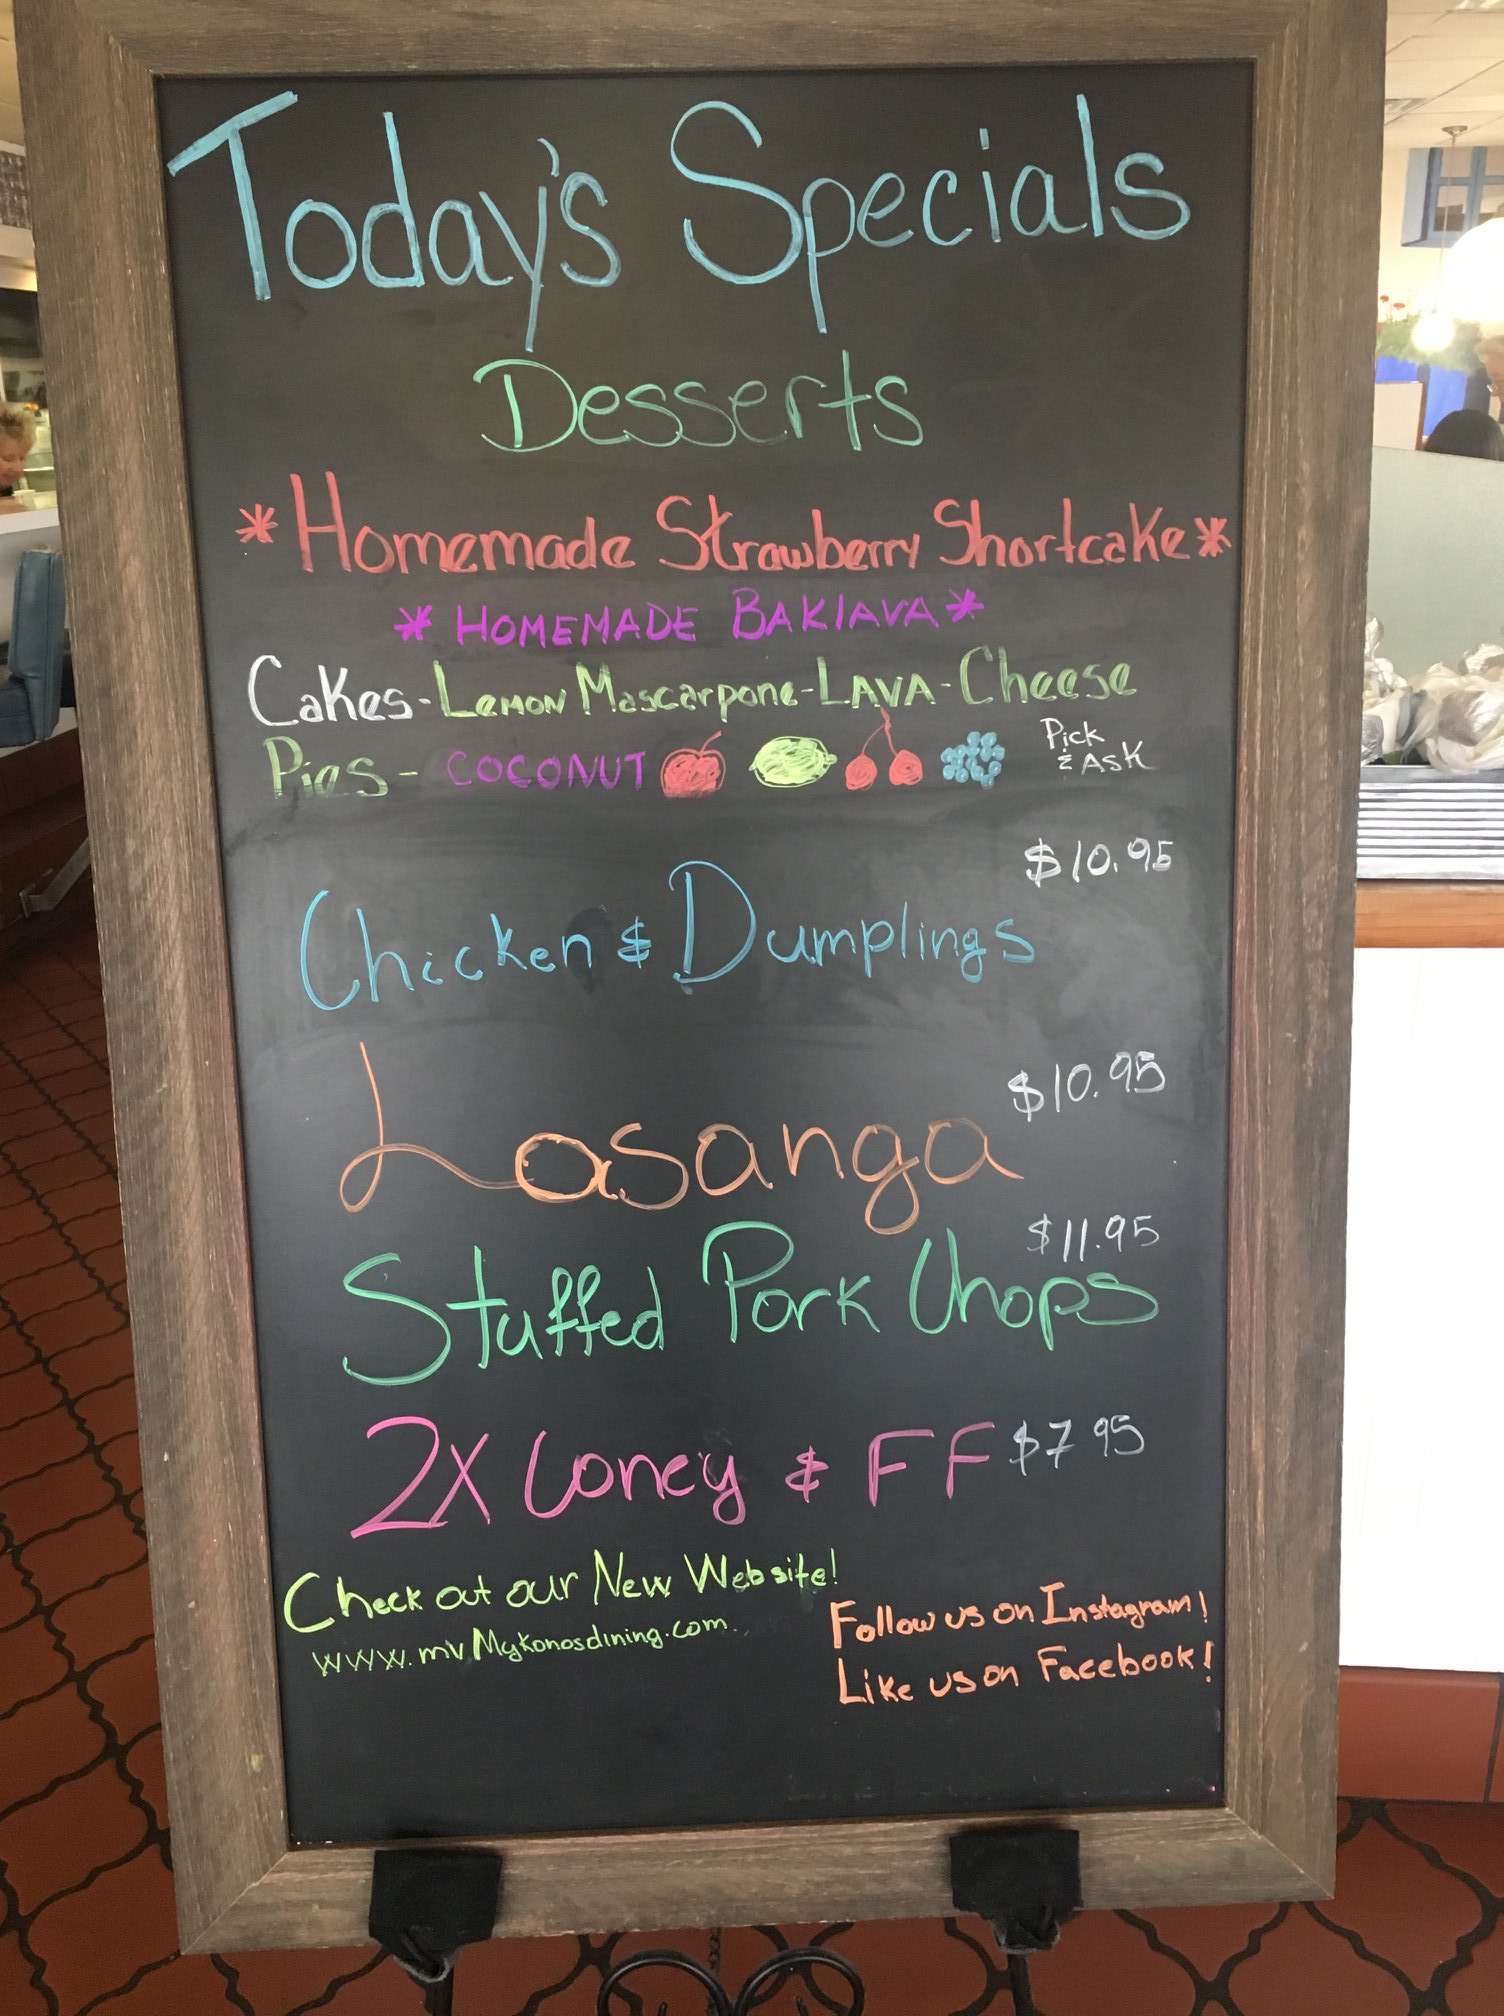 Today's Specials
Desserts
*Homemade Strawberry Shortcake*
*HOMEMADE BAKlAVA*
CaKes-Lemon Mascarpone-LAVA-Cheese
Pies- COCONUT Pick
& ASK
$10.95
Chicken & Dumplings
$10.95
Lasanga
$11.95
Stuffed Pork Chops
2X Coney & FF $7 95
Check out our New Website!
www.mvMykonosdining.com
Follow us on Instagram!
Like us on Facebook!